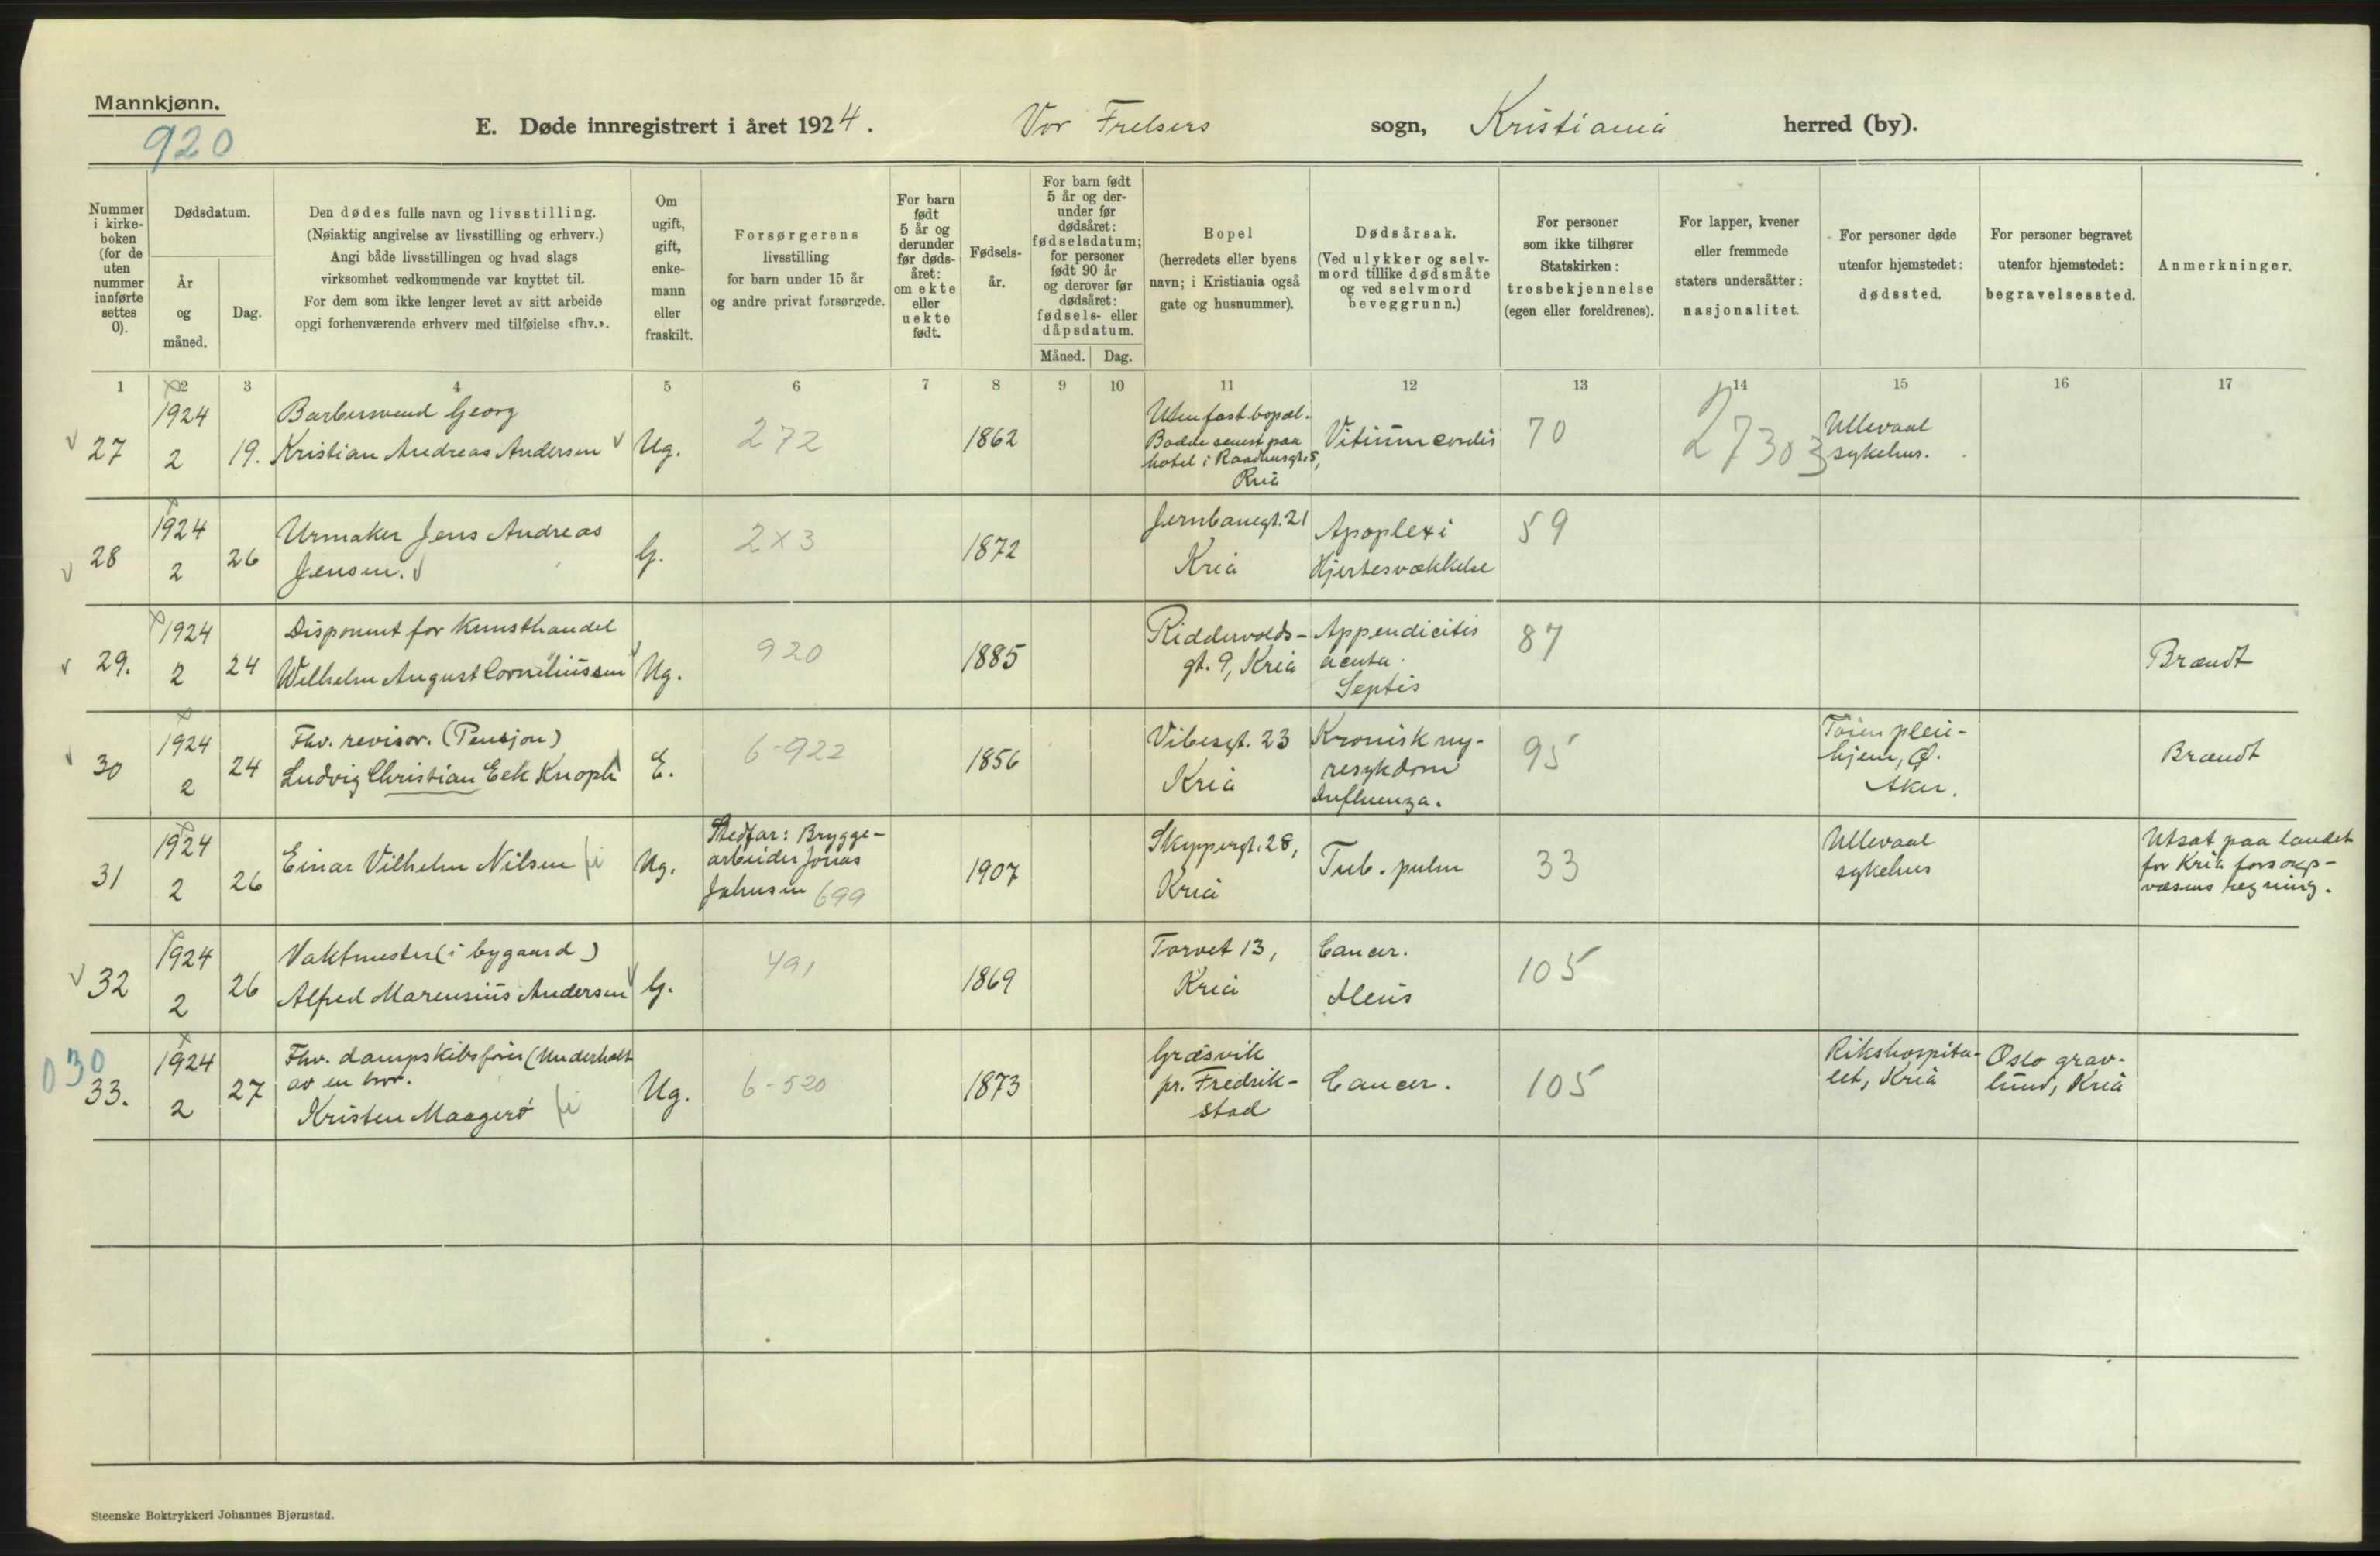 Mannkjønn.
920
E. Døde innregistrert i året 1924. Vor Frelsers sogn, Kristiania herred (by).
Nummer i kirke-boken (for de uten nummer innførte settes 0).
Dødsdatum.
År og måned.
Dag.
Den dødes fulle navn og livsstilling.
(Nøiaktig angivelse av livsstilling og erhverv.)
Angi både livsstillingen og hvad slags
virksomhet vedkommende var knyttet til.
For dem som ikke lenger levet av sitt arbeide
opgi forhenværende erhverv med tilføielse «fhv.».
Om ugift, gift, enke-mann eller fraskilt.
Forsørgerens
livsstilling
for barn under 15 år
og andre privat forsørgede.
For barn født 5 år og derunder før døds-året: om ekte eller uekte født.
Fødsels-år.
For barn født 5 år og der-under før dødsåret: fødselsdatum; for personer født 90 år og derover før dødsåret: fødsels- eller dåpsdatum.
Måned. Dag.
Bopel
(herredets eller byens
navn; i Kristiania også
gate og husnummer).
Dødsårsak.
(Ved ulykker og selv-
mord tillike dødsmåte
og ved selvmord
beveggrunn.)
For personer
som ikke tilhører
Statskirken:
trosbekjennelse
(egen eller foreldrenes).
For lapper, kvener
eller fremmede
staters undersåtter:
nasjonalitet.
For personer døde
utenfor hjemstedet:
dødssted.
For personer begravet
utenfor hjemstedet:
begravelsessted.
Anmerkninger.
1 2 3 4 5 6 7 8 9 10 11 12 13 14 15 16 17
27
1924
2
19.
Barbersvend Georg
Kristian Andreas Andersen
Ug.
272
1862
Uten fast bopæl.
Bodde senest paa
hotel i Raadhusgt. 5,
Kria
Vitium cordis
70
27303
Ullevaal
sykehus.
28
1924
2
26
Urmaker Jens Andreas
Jensen.
G.
2X3
1872
Jernbanegt. 21
Kria
Apoplexi
Hjertesvækkelse
59
29.
1924
2
24
Disponent for Kunsthandel
Wilhelm August Corneliussen
Ug.
920
1885
Riddervolds-
gt. 9, Kria
Appendicitis
acuta.
Septis
87
Brændt
30
1924
2
24
Fhv. revisor. (Pensjon)
Ludvig Christian Eek Knoph
E.
6-922
1856
Vibesgt. 23
Kria
Kronisk ny-
resykdom
Influenza.
95
Tøien pleie-
hjem, Ø.
Aker.
Brændt
31
1924
2
26
Einar Vilhelm Nilsen
Ug.
Stedfar: Brygge-
arbeider Jonas
Johnsen 699
1907
Skippergt. 28,
Kria
Tub. pulm
33
Ullevaal
sykehus
Utsat paa landet
for Kria forsorgs-
væsens regning.
32
1924
2
26
Vaktmester (i bygaard)
Alfred Marensius Andersen
G.
491
1869
Torvet 13,
Kria
Cancer.
Aleus
105
030
33.
1924
2
27
Fhv. dampskibsfører (Underholdt
av en bror.
Kristen Maagerø
Ug.
6-520
1873
Græsvik
pr. Fredrik-
stad
Cancer.
105
Rikshospita-
let, Kria
Oslo grav-
lund, Kria
Steenske Boktrykkeri Johannes Bjørnstad.